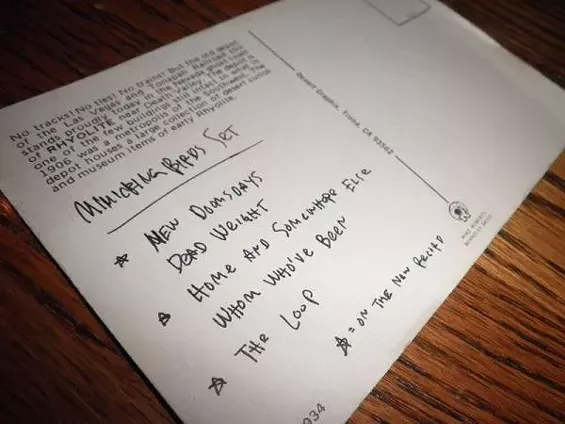 No tracks! No ties! No trains! But the old depot
of the Las Vegas and Tonapah Railroad still
stands proudly today in the Nevada ghost town
of RHYOLITE near Death Valley. The depot is
one of the few buildings still intact in what in
1906 was a metropolis of the Southwest. The
depot houses a large collection of desert curios
and museum items of early Rhyolite.
MIMICKING BIRDS SET
☆ NEW DOOMSDAYS
DEAD WEIGHT
☆ HOME AND SOMEWHERE ELSE
WHOM WHO'VE BEEN
☆ THE LOOP
☆ = ON THE NEW RECORD
Desert Graphix, Trona, CA 93562
MIKE ROBERTS
BERKELEY 94710
934